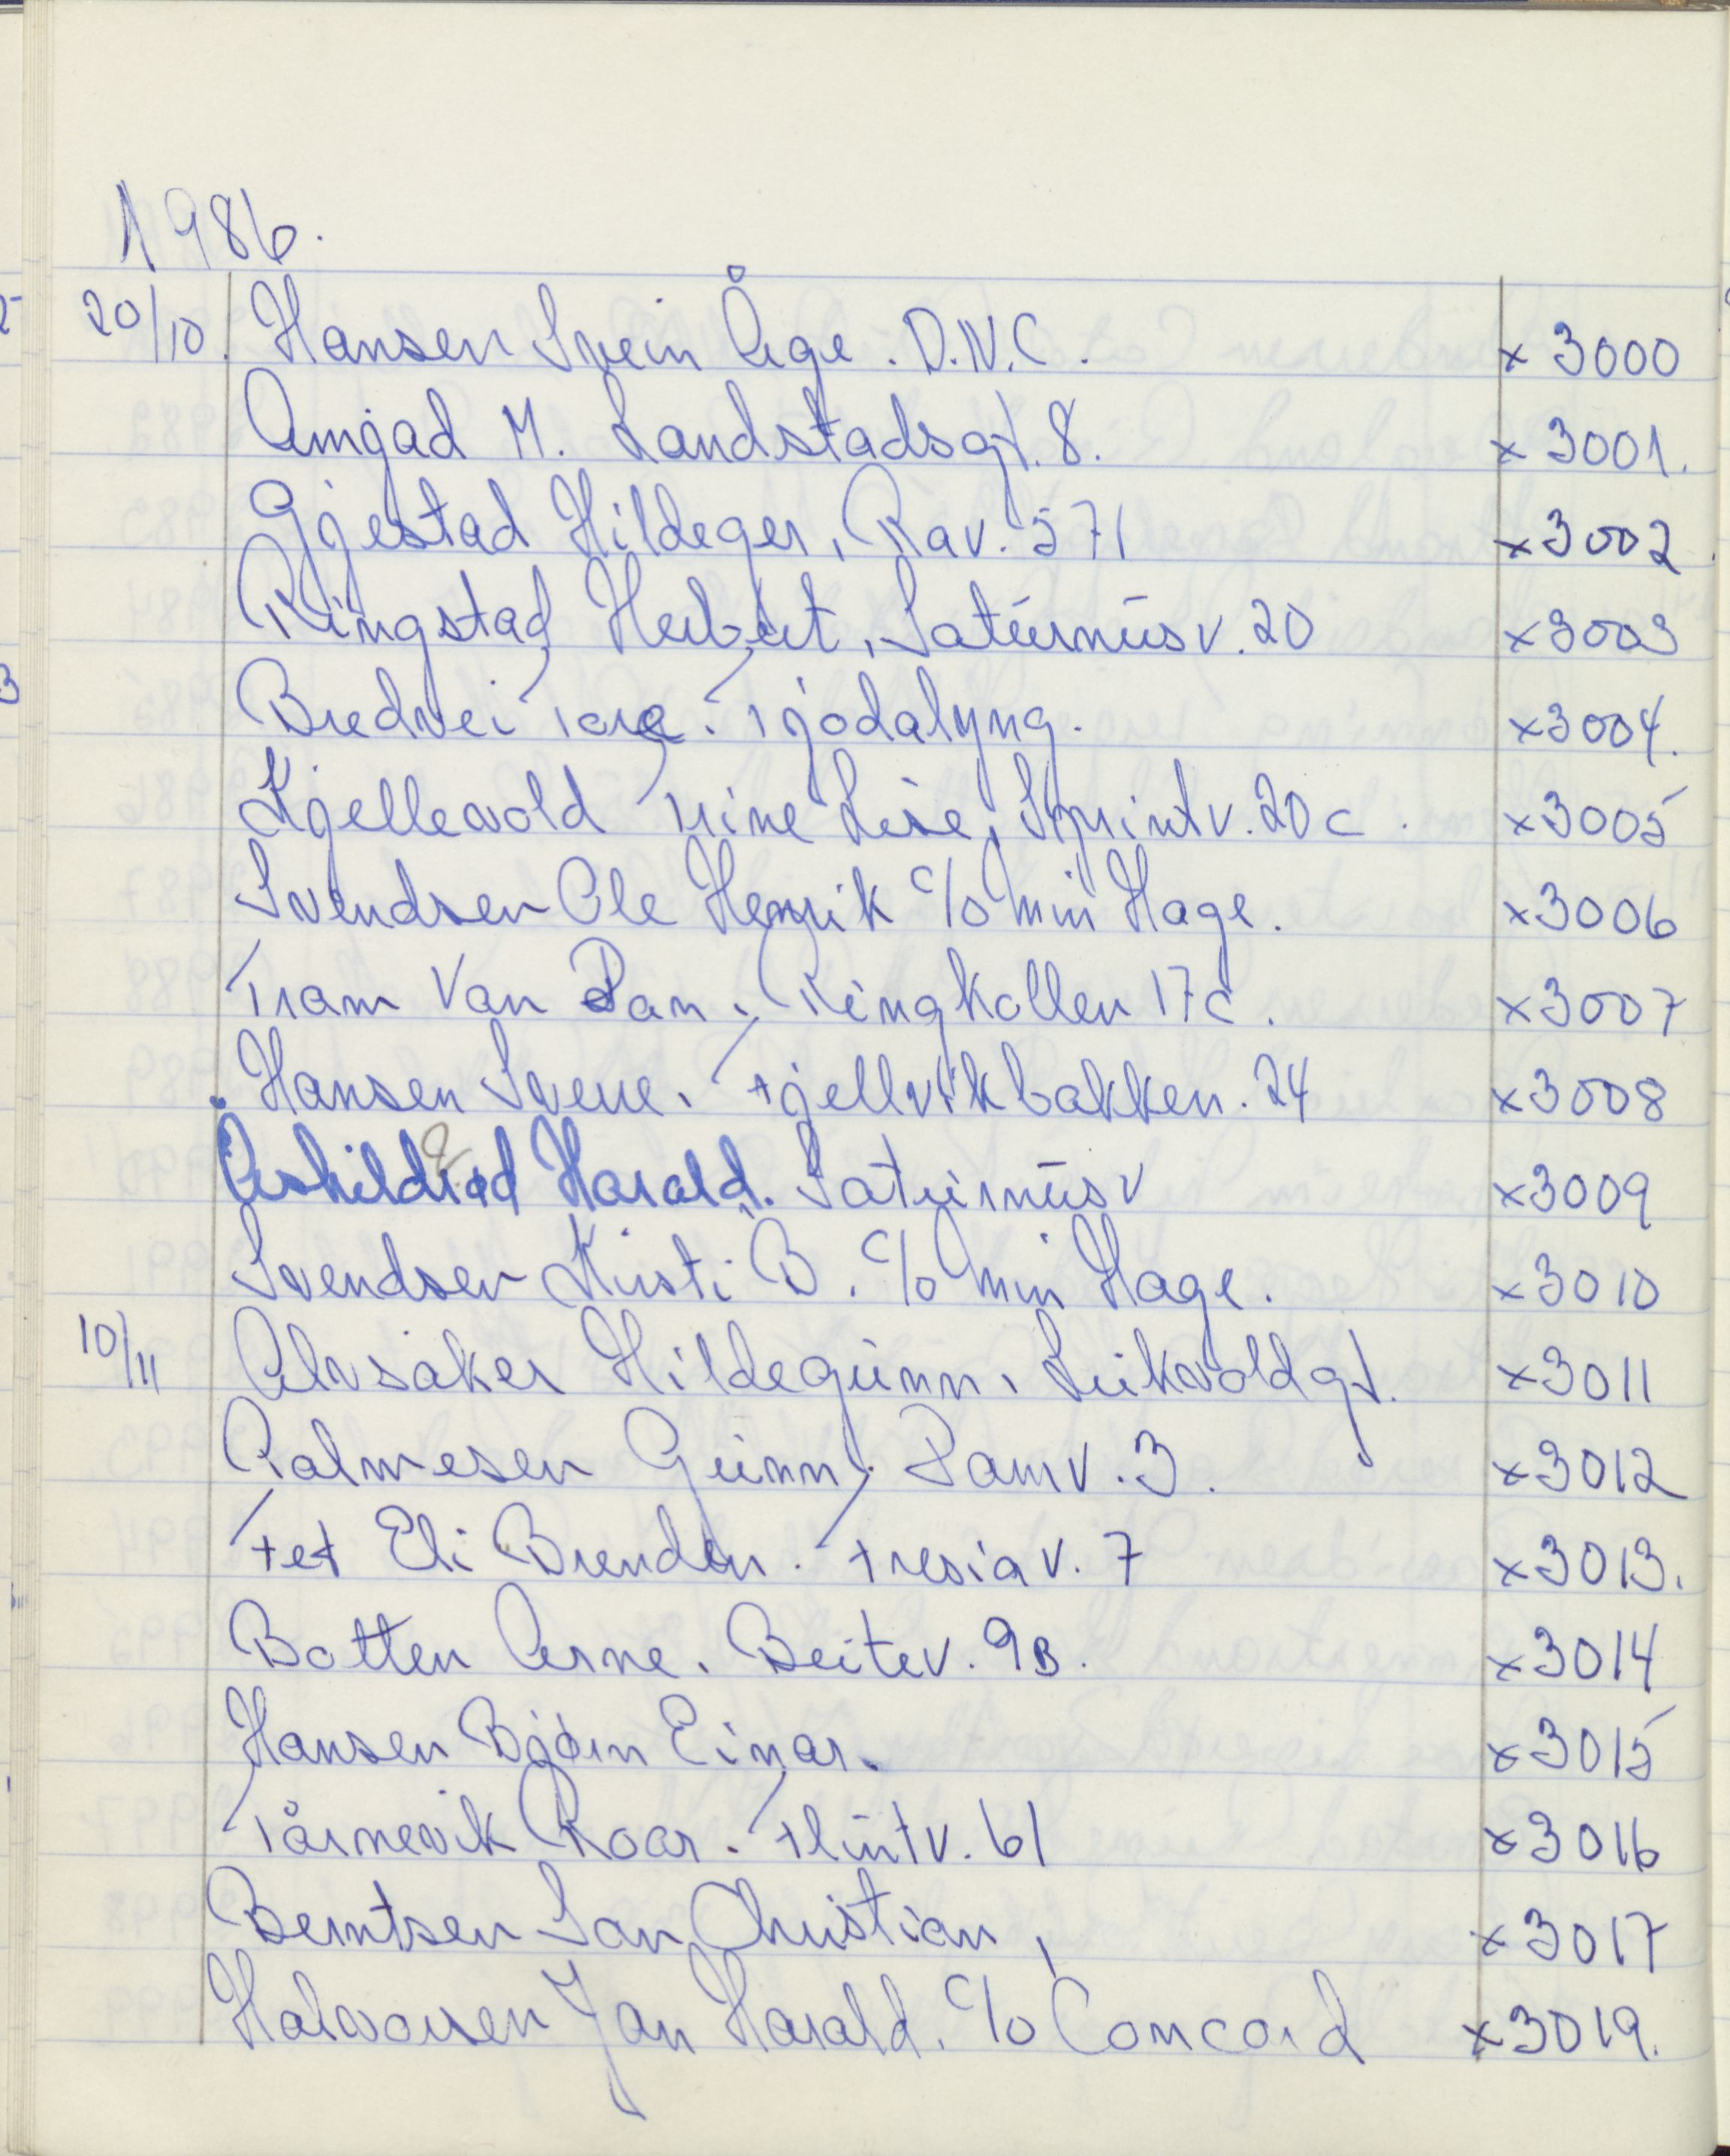 1986.
20/10. Hansen Svein Åge. D.N.C. x 3000
Amjad M. Landstadsgt. 8. x 3001.
Gjestad Hildeger, Rav. 571 x 3002
Ringstad Herbert, Saturnusv. 20 x 3003
Bredvei Tore. Tjodalyng. x 3004.
Kjellevold Trine Lise, Sprintv. 20 c. x 3005
Svendsen Ole Henrik c/o Min Hage. x 3006
Tram Van Dan. Ringkollen 17c. x 3007
Hansen Svene. Fjellvikbakken. 24 x 3008
Askildrød Harald. Saturnusv x 3009
Svendsen Kirsti B. c/o Min Hage. x 3010
10/11 Alvsåker Hildegunn, Leikvoldgt. x 3011
Palmesen Gunn. Damv. 3. x 3012
Fet Eli Brenden. Fresiav. 7 x 3013.
Botten Arne. Beitev. 9B. x 3014
Hansen Bjørn Einar. x 3015
Tårnevik Roar. Flintv. 61 x 3016
Berntsen Jan Christian, x 3017
Halvorsen Jan Harald. c/o Concord x 3019.